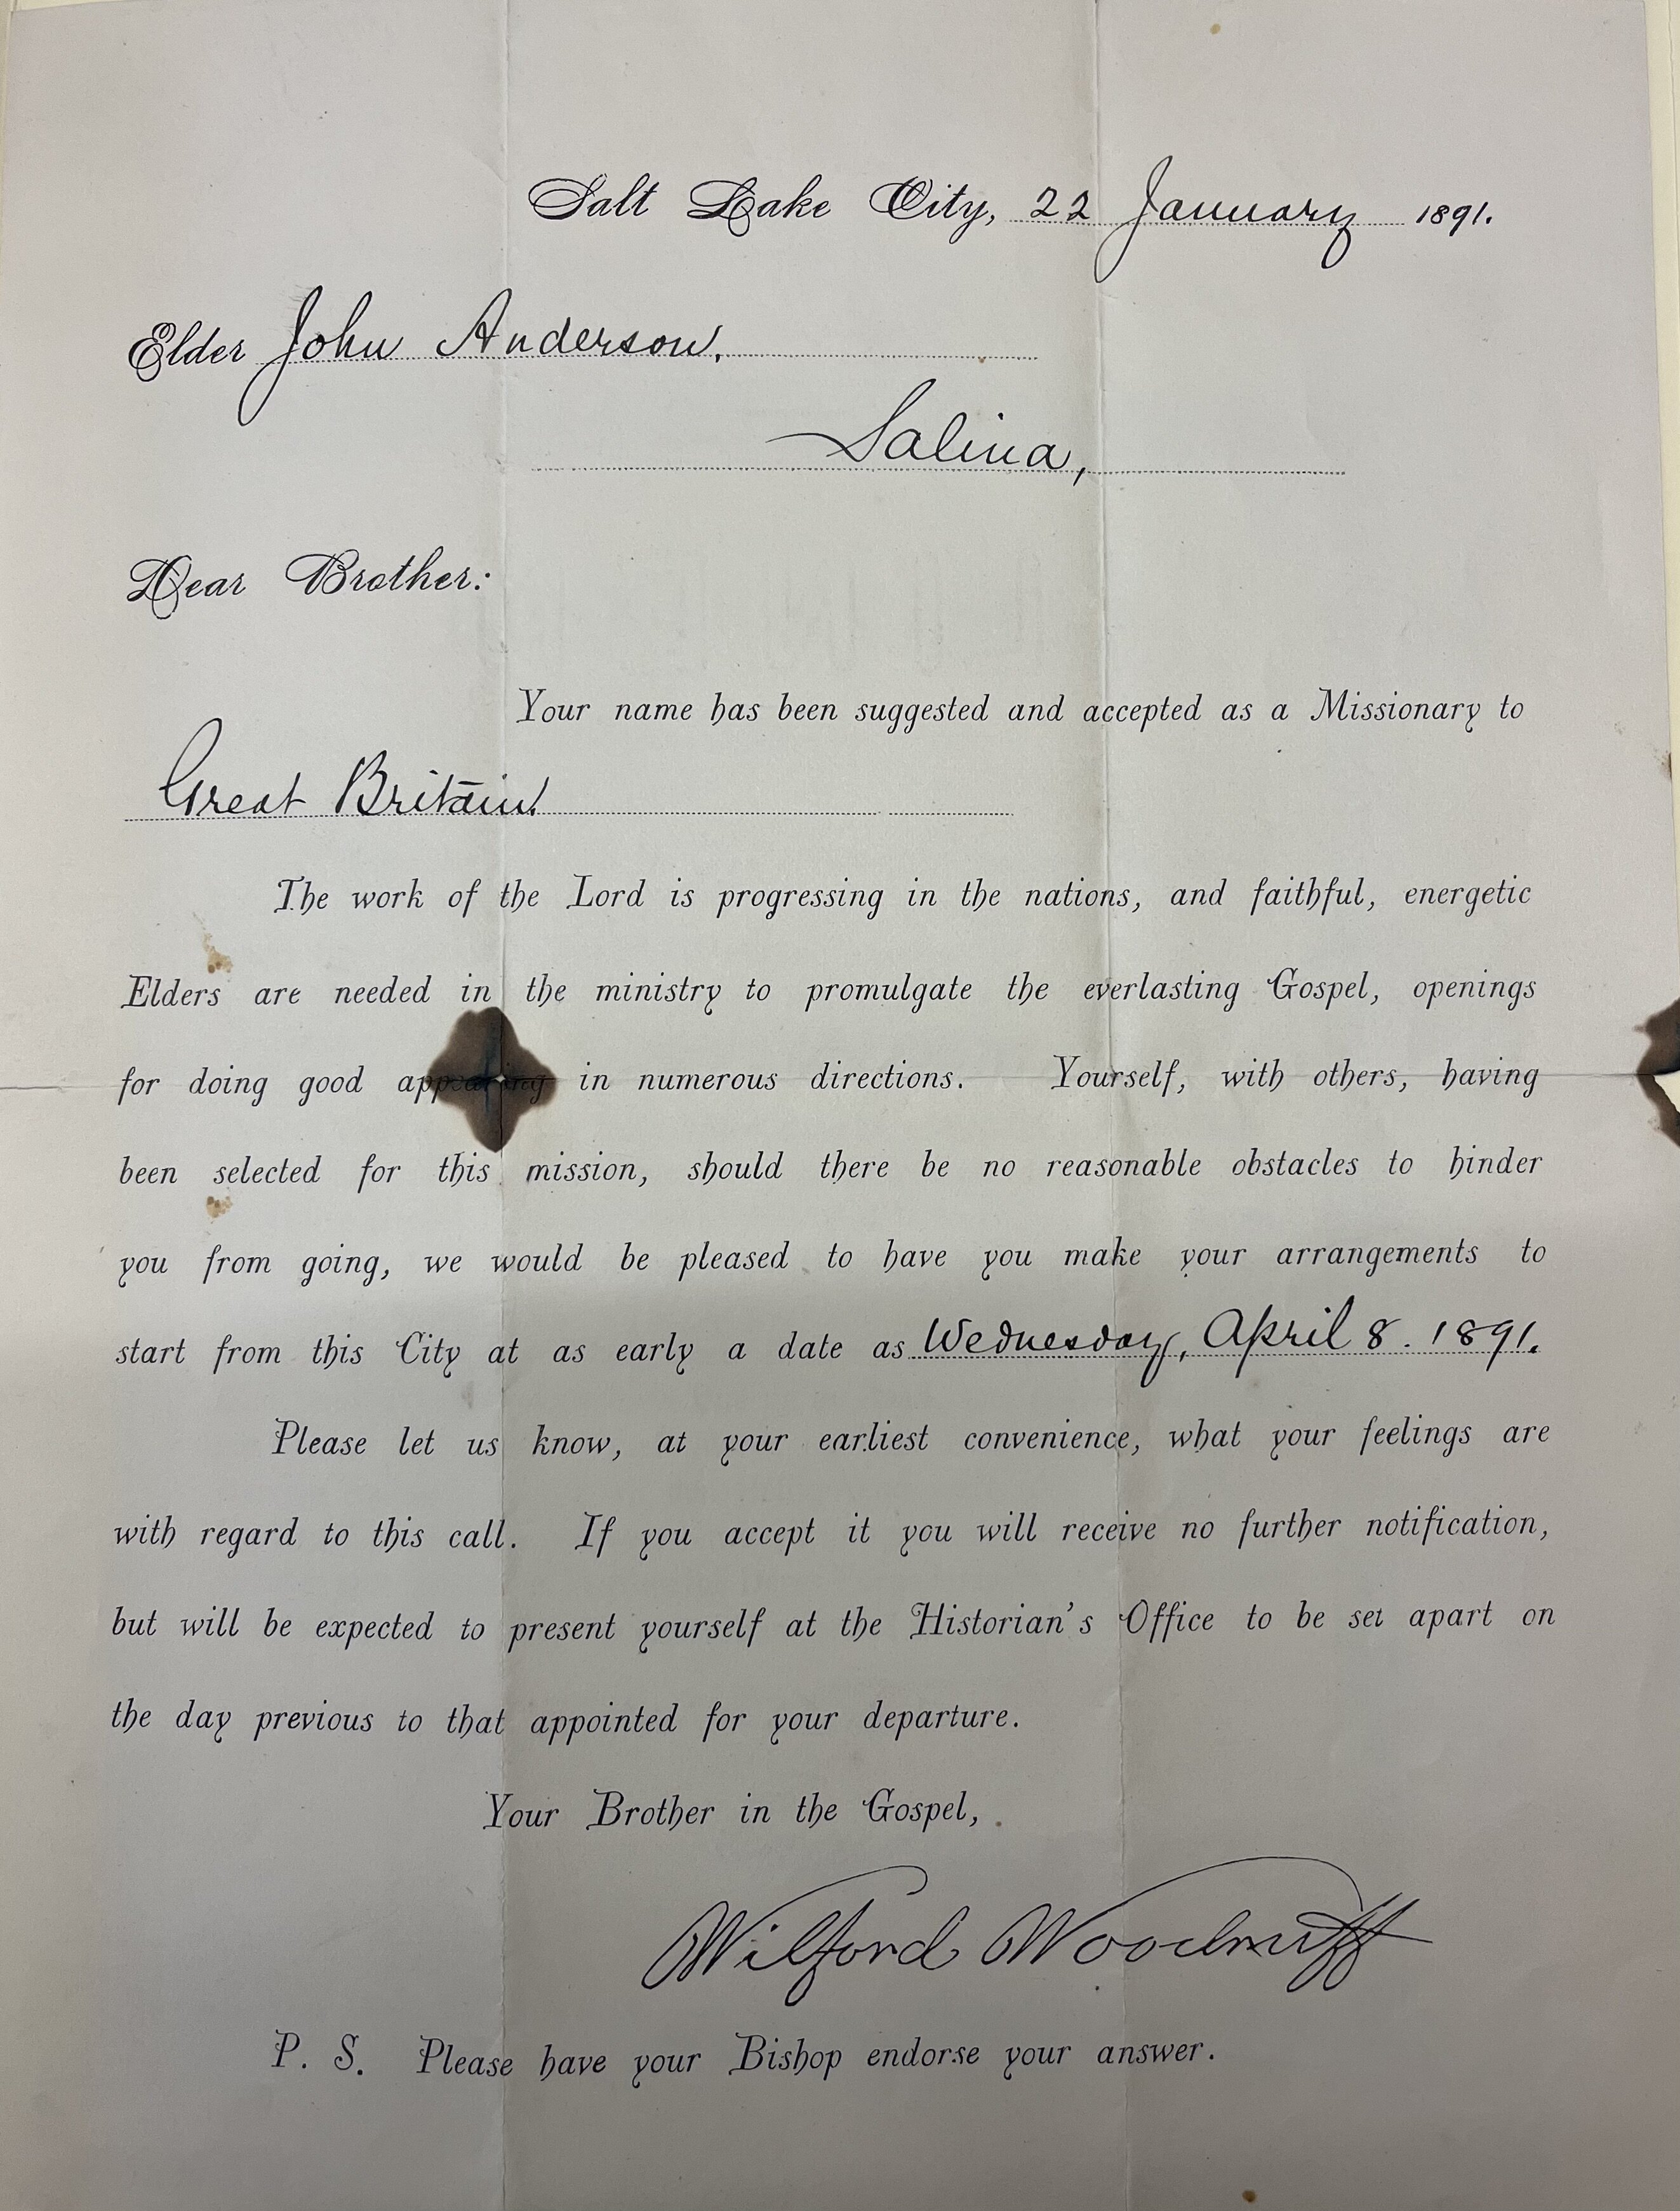 Salt Lake City, 22 January 1891.
Elder John Anderson.
Salina,
Dear Brother:
Your name has been suggested and accepted as a Missionary to
Great Britain.
The work of the Lord is progressing in the nations, and faithful, energetic
Elders are needed in the ministry to promulgate the everlasting Gospel, openings
for doing good appearing in numerous directions. Yourself, with others, having
been selected for this mission, should there be no reasonable obstacles to hinder
you from going, we would be pleased to have you make your arrangements to
start from this City at as early a date as Wednesday, April 8. 1891.
Please let us know, at your earliest convenience, what your feelings are
with regard to this call. If you accept it you will receive no further notification,
but will be expected to present yourself at the Historian's Office to be set apart on
the day previous to that appointed for your departure.
Your Brother in the Gospel,
Wilford Woodruff
P. S. Please have your Bishop endorse your answer.